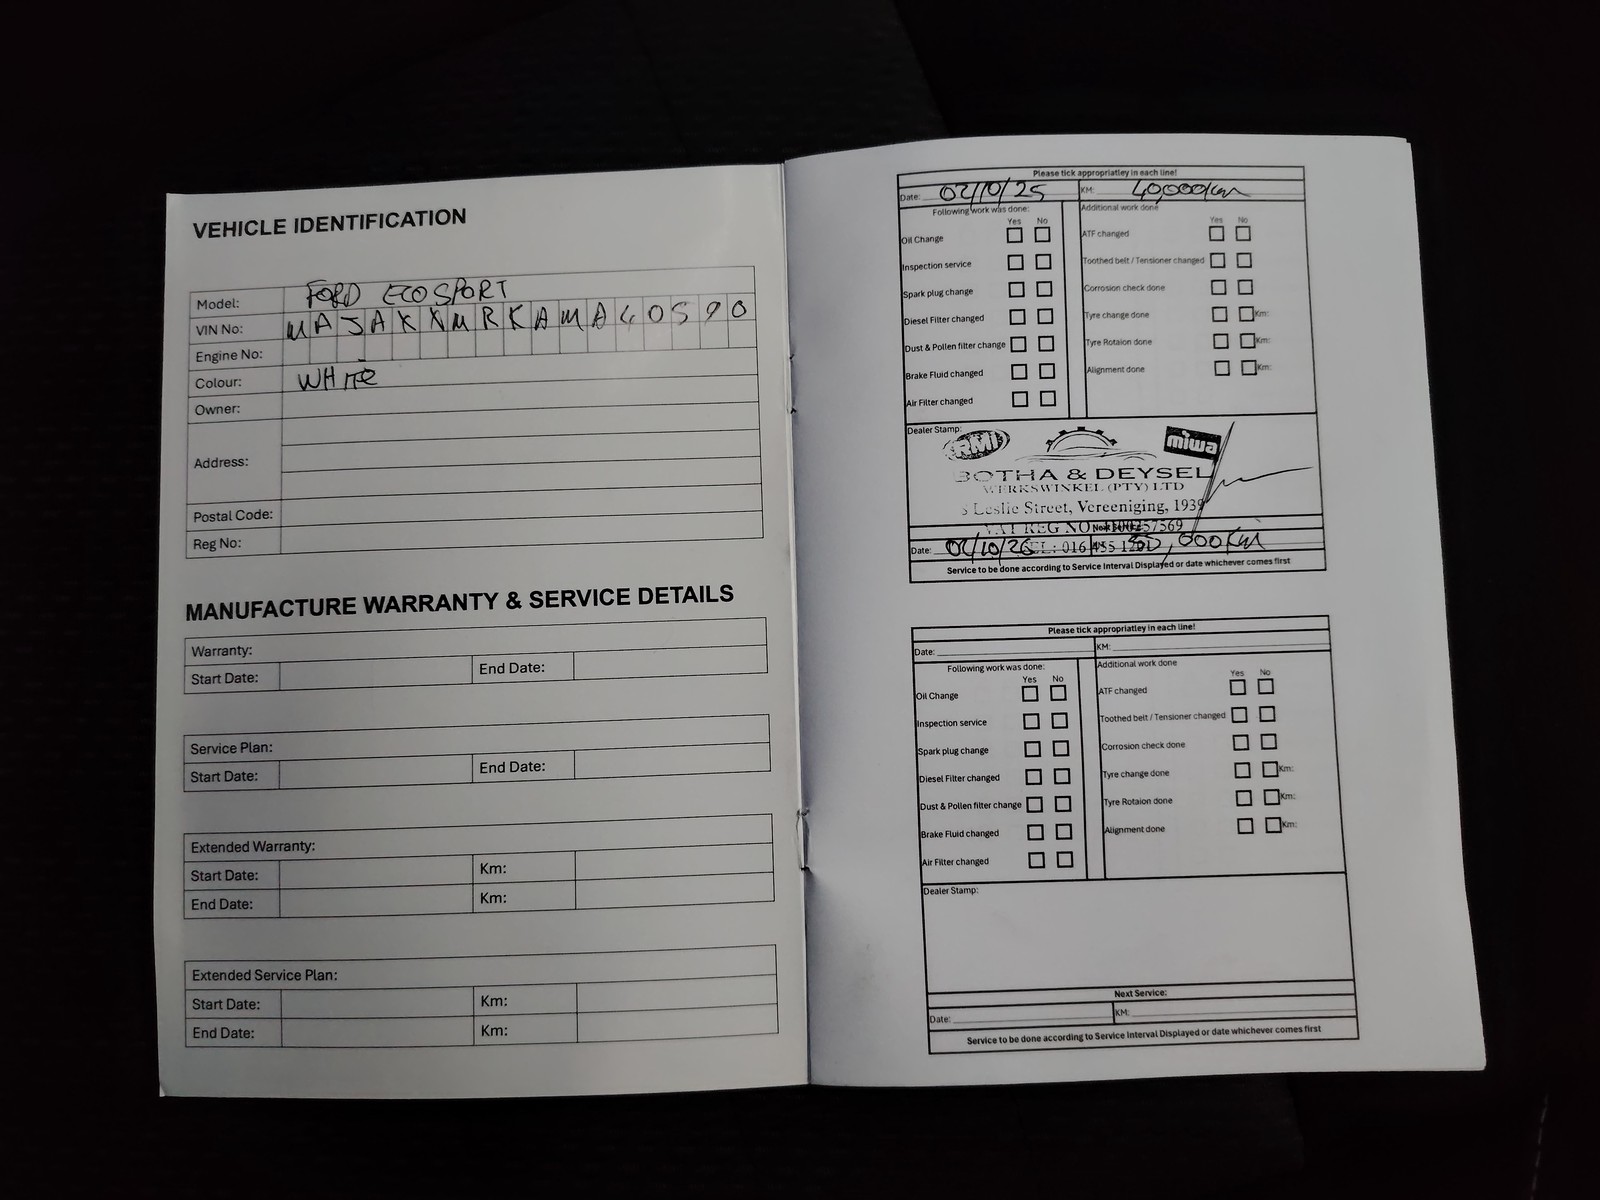 VEHICLE IDENTIFICATION
Model: FORD ECOSPORT
VIN No: MAJAXXMRKAMA40590
Engine No:
Colour: WHITE
Owner:
Address:
Postal Code:
Reg No:
MANUFACTURE WARRANTY & SERVICE DETAILS
Warranty:
Start Date: End Date:
Service Plan:
Start Date: End Date:
Extended Warranty:
Start Date: Km:
End Date: Km:
Extended Service Plan:
Start Date: Km:
End Date: Km:
Please tick appropriatley in each line!
Date: 02/10/25 KM: 40,000km
Following work was done: Additional work done
Yes No Yes No
Oil Change ATF changed
Inspection service Toothed belt / Tensioner changed
Spark plug change Corrosion check done
Diesel Filter changed Tyre change done Km:
Dust & Pollen filter change Tyre Rotaion done Km:
Brake Fluid changed Alignment done Km:
Air Filter changed
Dealer Stamp:
RMI miwa
BOTHA & DEYSEL
WERKSWINKEL (PTY) LTD
Leslie Street, Vereeniging, 1939
VAT REG NO
Next Service:
Date: 02/10/26 TEL: 016 455
Service to be done according to Service Interval Displayed or date whichever comes first
Please tick appropriatley in each line!
Date: KM:
Following work was done: Additional work done
Yes No Yes No
Oil Change ATF changed
Inspection service Toothed belt / Tensioner changed
Spark plug change Corrosion check done
Diesel Filter changed Tyre change done Km:
Dust & Pollen filter change Tyre Rotaion done Km:
Brake Fluid changed Alignment done Km:
Air Filter changed
Dealer Stamp:
Next Service:
Date: KM:
Service to be done according to Service Interval Displayed or date whichever comes first